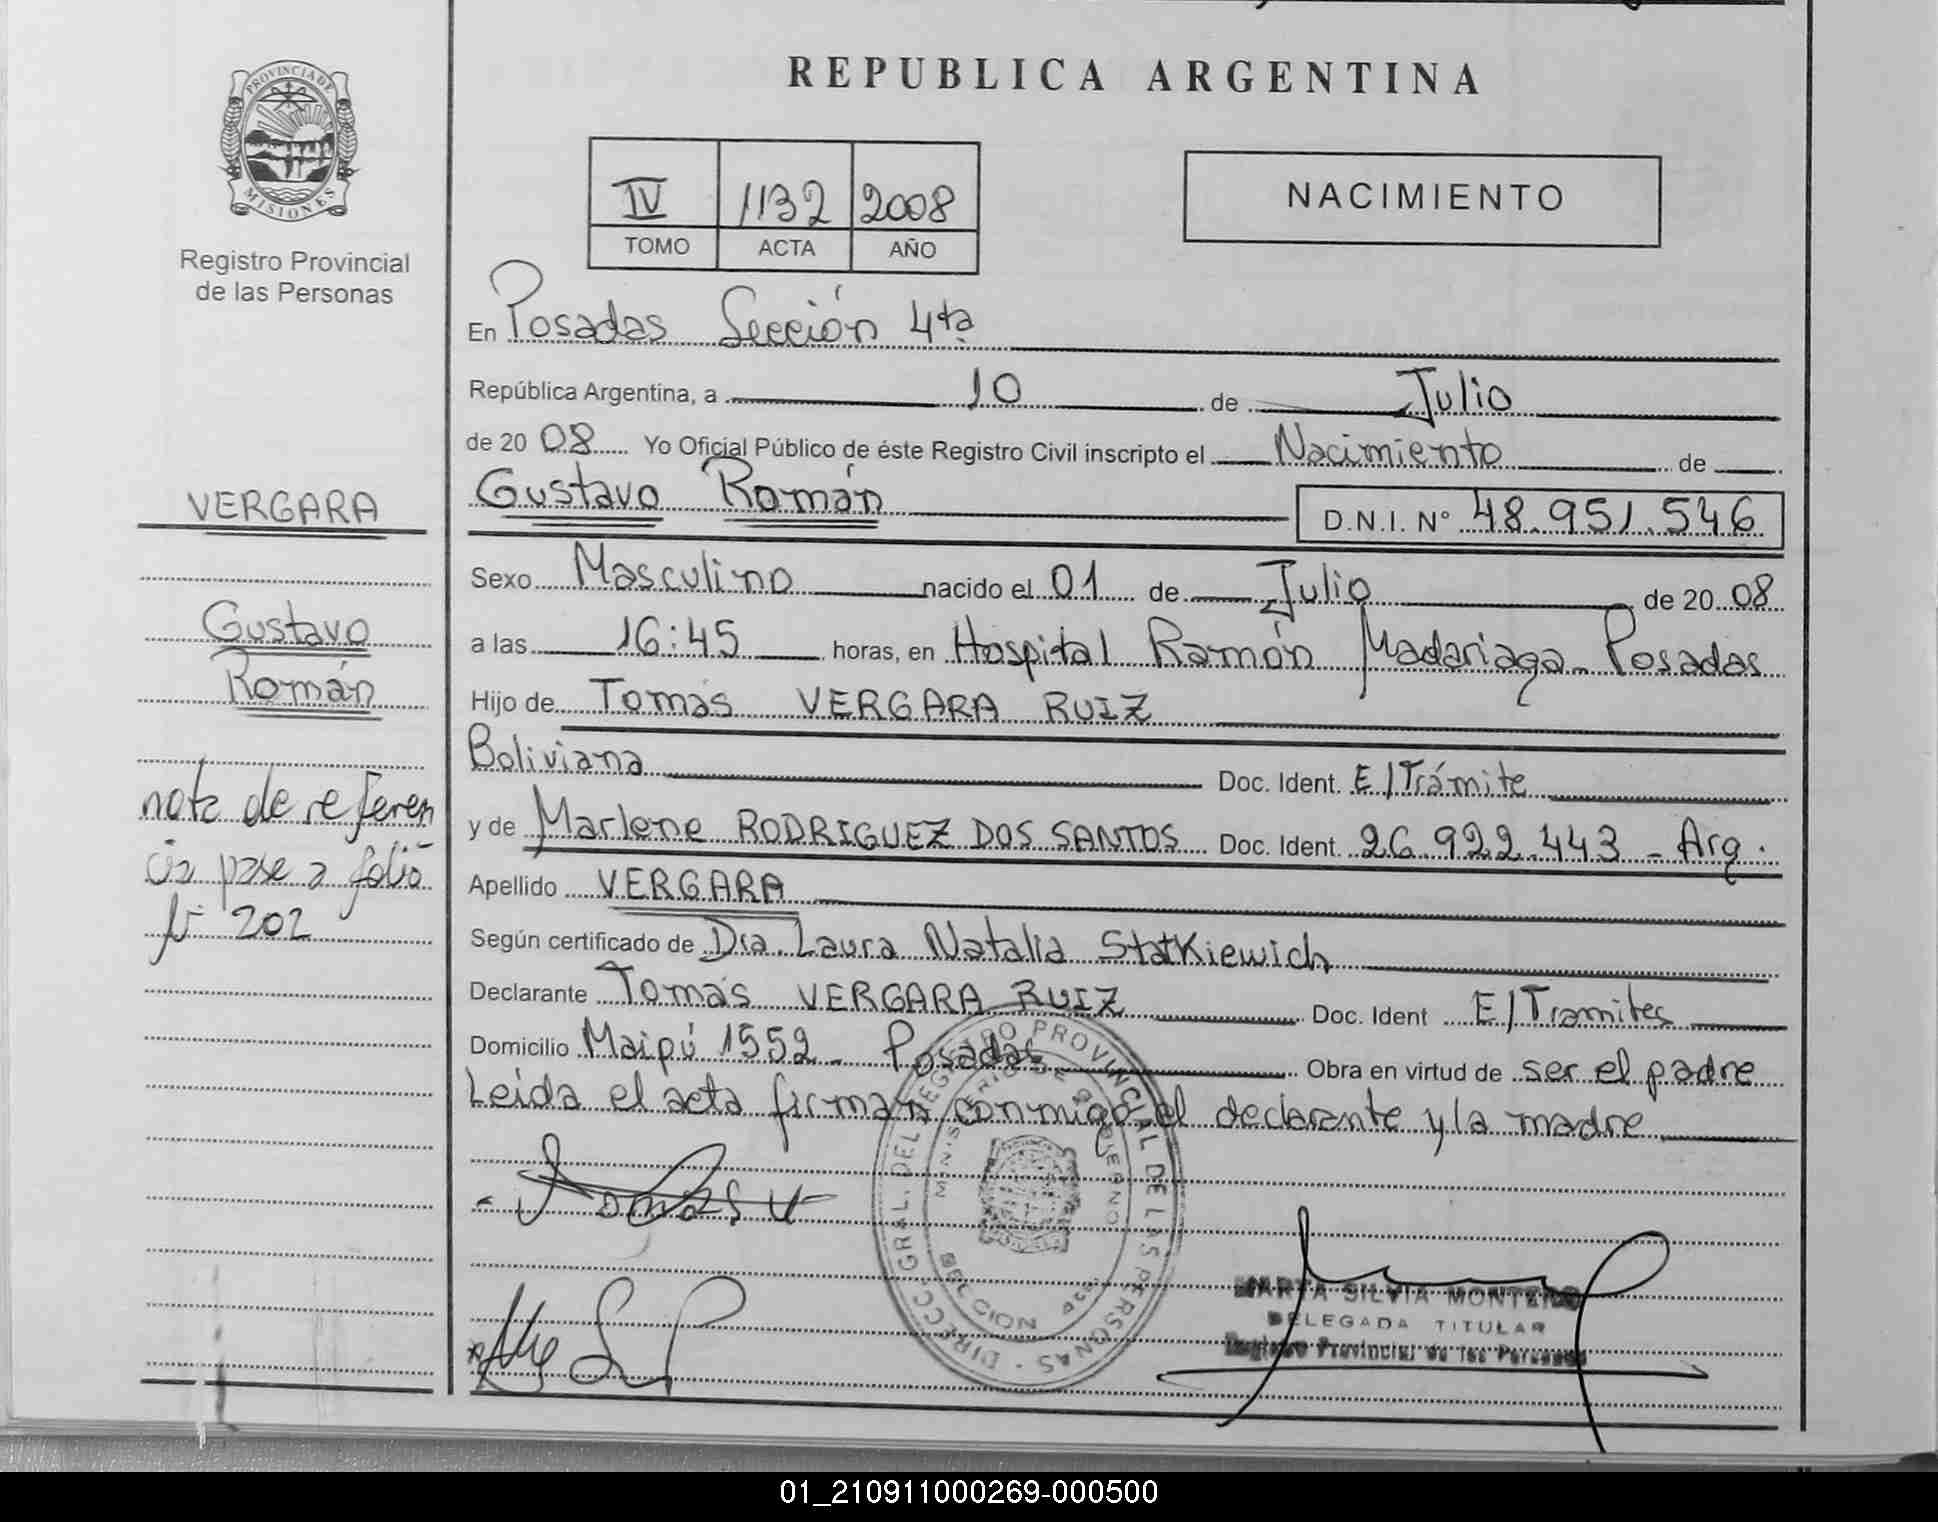 PROVINCIA DE
MISIONES
Registro Provincial
de las Personas
VERGARA
Gustavo
Román
nota de referen
cia pase a folio
N° 202
REPUBLICA ARGENTINA
IV 1132 2008
TOMO ACTA AÑO
NACIMIENTO
En Posadas Sección 4ta
República Argentina, a 10 de Julio
de 20 08 Yo Oficial Público de éste Registro Civil inscripto el Nacimiento de
Gustavo Román D.N.I. N° 48.951.546
Sexo Masculino nacido el 01 de Julio de 20 08
a las 16:45 horas, en Hospital Ramón Madariaga - Posadas
Hijo de Tomás VERGARA RUIZ
Boliviana Doc. Ident. E/Trámite
y de Marlene RODRIGUEZ DOS SANTOS Doc. Ident. 26.922.443 - Arg.
Apellido VERGARA
Según certificado de Dra. Laura Natalia Statkiewich
Declarante Tomás VERGARA RUIZ Doc. Ident E/Tramites
Domicilio Maipú 1552 - Posadas Obra en virtud de ser el padre
Leída el acta firman conmigo el declarante y la madre
Tomas V
DIRECC. GRAL. DEL REGISTRO PROVINCIAL DE LAS PERSONAS
MINISTERIO DE GOBIERNO
MARTA SILVIA MONTERO
DELEGADA TITULAR
Registro Provincial de las Personas
01_210911000269-000500